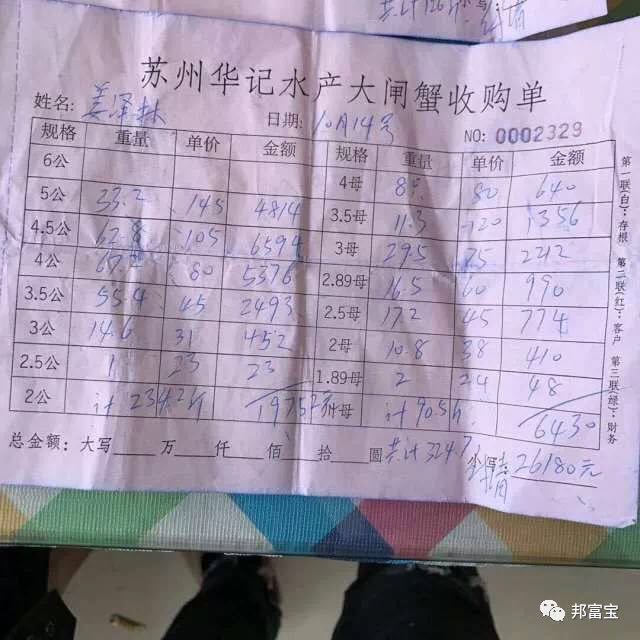 苏州华记水产大闸蟹收购单
姓名: 姜泽林 日期: 10月14号 NO: 0002329
规格 重量 单价 金额 规格 重量 单价 金额
6公 4母 80 640
5公 33.2 145 4814 3.5母 11.3 120 1356
4.5公 62.8 105 6594 3母 29.5 2212
4公 80 5376 2.89母 16.5 60 990
3.5公 55.4 45 2493 2.5母 17.2 45 774
3公 14.6 31 452 2母 10.8 38 410
2.5公 1 23 23 1.89母 2 24 48
2公 计 234.2斤 母 计 90.5斤 6430
总金额: 大写 万 仟 佰 拾 圆 共计 324.7 26180元
第一联白:存根 第二联红:客户 第三联绿:财务
邦富宝